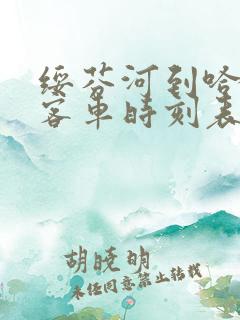 绥芬河到哈
客车时刻表
胡晓明
未经同意禁止转载